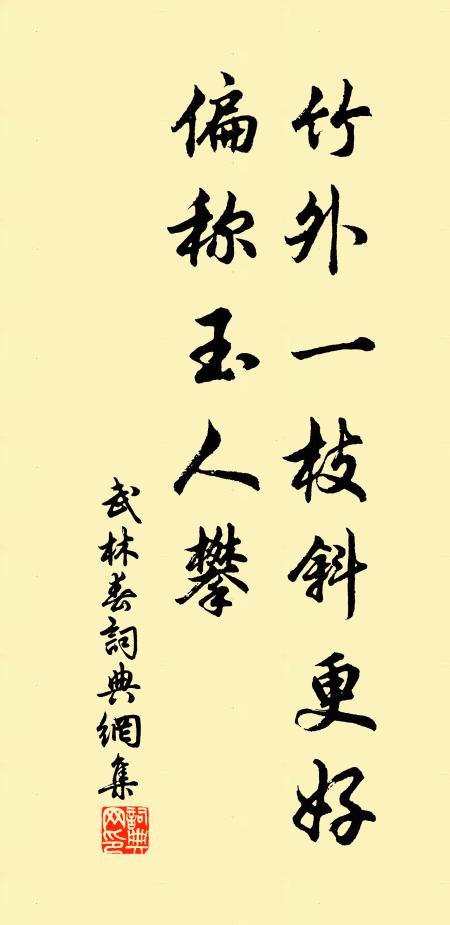 竹外一枝斜更好
偏称玉人攀
武林春詞典網集
詞典
网印